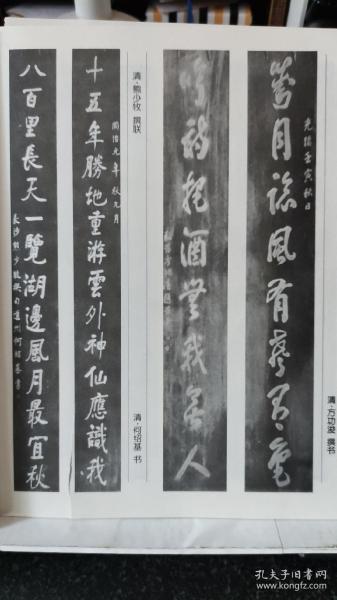 清·方功渤 撰书
光緒壬寅秋日
對月臨風有聲有色
吟詩把酒無我無人
清·熊少牧 撰联
清·何绍基 书
同治元年秋九月
十五年勝地重游雲外神仙應識我
八百里長天一覽湖邊風月最宜秋
長沙熊少牧撰句道州何紹基書
孔夫子旧书网